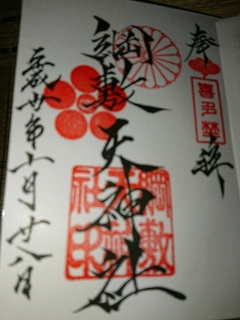 奉拝
喜多埜
綱敷天神社
綱敷
天神
社印
平成廿年十一月廿八日